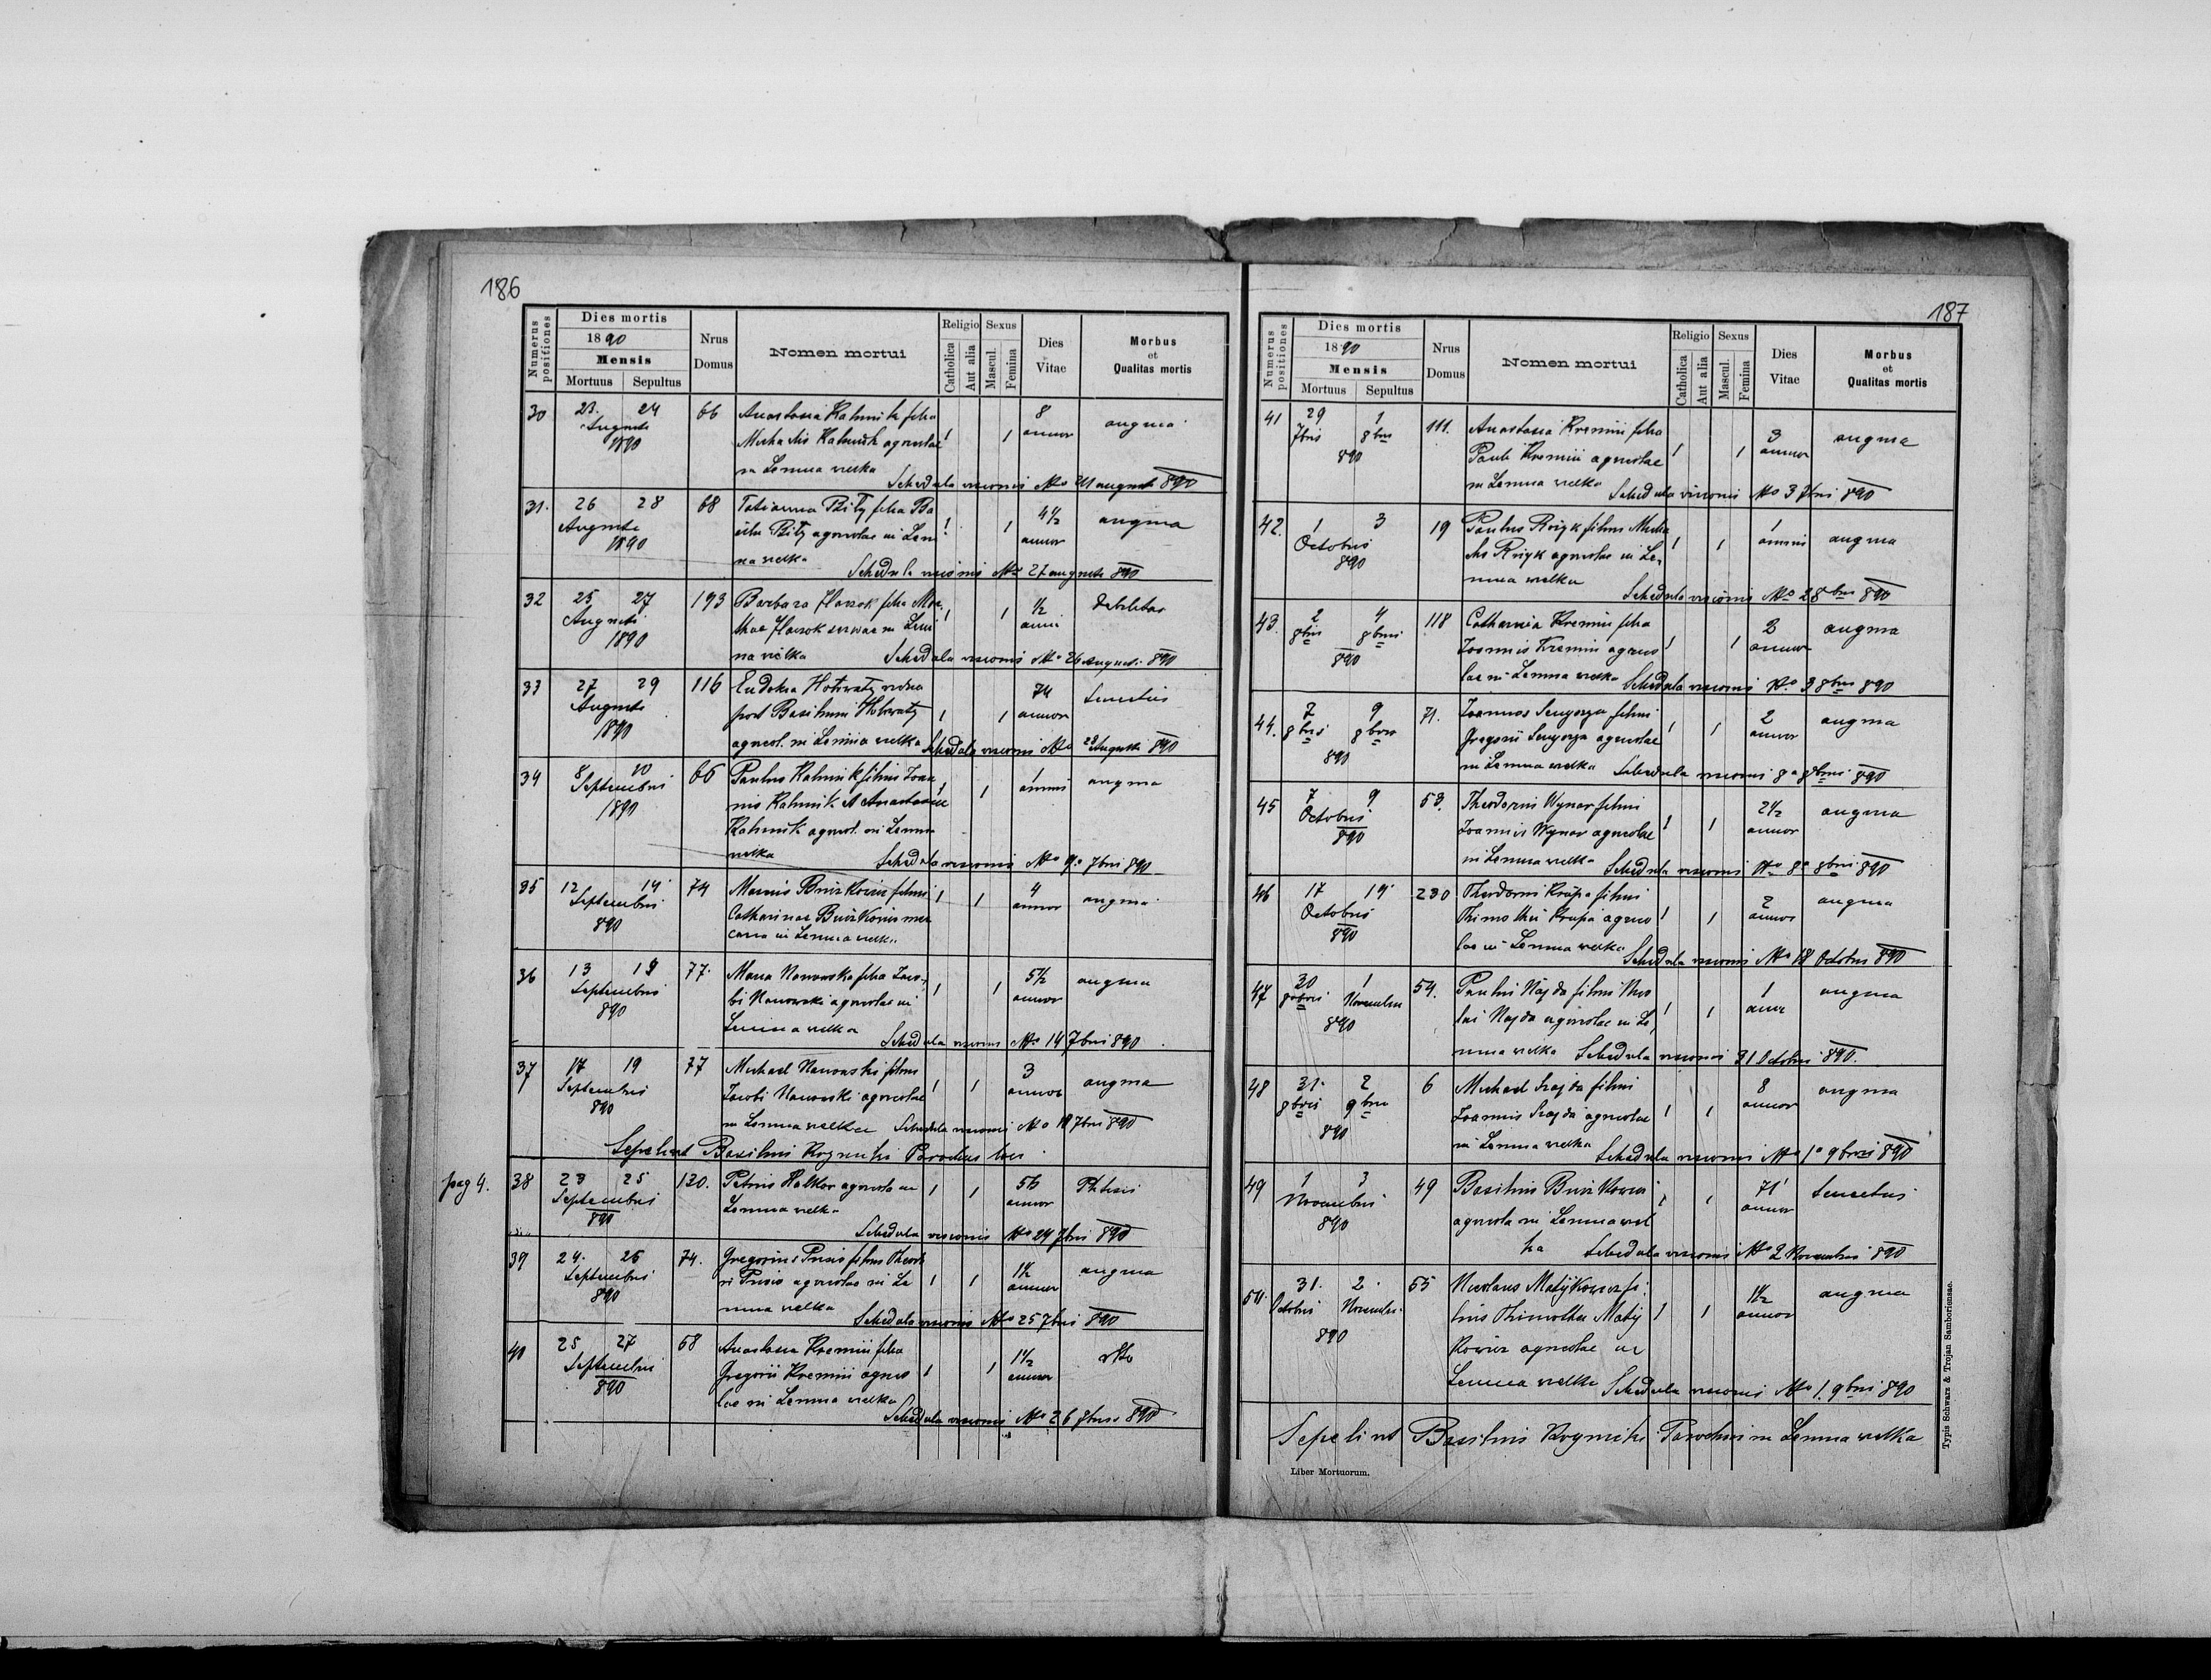 186
Numerus positiones
Dies mortis
1890
Mensis
Mortuus Sepultus
Nrus Domus
Nomen mortui
Religio
Catholica
Aut alia
Sexus
Mascul.
Femina
Dies Vitae
Morbus et Qualitas mortis
30 23. 24 66 Anastasia Kalinik filia 8 angina
Augusti Michaelis Kalinik agricolae 1 1 annor
1890 in Lenina wielka
Schedula visionis Nro 24 augusti 890
31. 26 28 68 Tatianna Bity filia Ba 4½ angina
Augusti silii Bity agricolae in Leni 1 1 annor
1890 na wielka Schedula visionis Nro 27 augusti 890
32 25 27 193 Barbara filia 1 1 ½ debilitas
Augusti anni
1890 na wielka Schedula visionis Nro 26 augusti 890
33 27 29 116 Eudokia Hotwaty vidua 74 Senectus
Augusti post Basilium Hotwaty 1 1 annor
1890 agricol. in Lenina wielka Schedula visionis Nro 28 Augusti 890
34 8 10 66 Paulus Kalinik filius Joan 1 angina
Septembris nis Kalinik et Anastasiae 1 1 anni
1890 Kalinik agricol. in Lenina
wielka Schedula visionis Nro 9. 7bris 890
35 12 14 74 filius 1 1 4 angina
Septembris Catharinae annor
890 in Lenina wielka
36 13 15 77. Maria Nanowska filia Jaco 5½ angina
Septembris bi Nanowski agricolae in 1 1 annor
890 Lenina wielka
Schedula visionis Nro 14 7bris 890
37 17 19 77 Michael Nanowski filius 3 angina
Septembris Jacobi Nanowski agricolae 1 1 annor
890 in Lenina wielka Schedula visionis Nro 18 7bris 890
Sepelivit Basilius Parochus loci
pag 4. 38 23 25 130. Petrus agricola in 1 1 56 Phtisis
Septembris Lenina wielka annor
890 Schedula visionis Nro 24 7bris 890
39 24. 26 74. Gregorius filius Theodo 1½ angina
Septembris ri agricolae in Le 1 1 annor
890 nina wielka Schedula visionis Nro 25 7bris 890
40 25 27 68 Anastasia Kremin filia 1½
Septembris Gregorii Kremin agrico 1 1 annor
890 lae in Lenina wielka
Schedula visionis Nro 26 7bris 890
187
Numerus positiones
Dies mortis
1890
Mensis
Mortuus Sepultus
Nrus Domus
Nomen mortui
Religio
Catholica
Aut alia
Sexus
Mascul.
Femina
Dies Vitae
Morbus et Qualitas mortis
41 29 1 111. Anastasia Kremin filia 3 angina
7bris 8bris Pauli Kremin agricolae 1 1 annor
890 in Lenina wielka Schedula visionis Nro 3 7bris 890
42. 1 3 19 Paulus filius Micha 1 angina
Octobris elis agricolae in Le 1 1 anni
890 nina wielka Schedula visionis Nro 2 8bris 890
43. 2 4 118 Catharina Kremin filia 2 angina
8bris 8bris Joannis Kremin agrico 1 1 annor
890 lae in Lenina wielka Schedula visionis Nro 3 8bris 890
44. 7 9 71. Joannes filius 2 angina
8bris 8bris Gregorii agricolae 1 1 annor
890 in Lenina wielka Schedula visionis 8a 8bris 890
45 7 9 53. Theodorus Wynar filius 2½ angina
Octobris Joannis Wynar agricolae 1 1 annor
890 in Lenina wielka Schedula visionis Nro 8a 8bris 890
46 17 19 230 Theodorus Krupa filius 2 angina
Octobris Thimothei Krupa agrico 1 1 annor
890 lae in Lenina wielka Schedula visionis Nro 18 Octobris 890
47 30 1 54. Paulus Najda filius Nico 1 angina
8bris Novembris lai Najda agricolae in Le 1 1 anni
890 nina wielka Schedula visionis 31 Octobris 890.
48 31. 2 6 Michael Szajda filius 8 angina
8bris 9bris Joannis Szajda agricolae 1 1 annor
890 in Lenina wielka Schedula visionis Nro 1a 9bris 890
49 1 3 49 Basilius 1 1 71 Senectus
Novembris agricola in Lenina wiel annor
890 ka Schedula visionis Nro 2 Novembris 890
50. 31. 2. 65 Nicolaus Matijkowicz fi 1½ angina
Octobris Novembris lius Thimothei Matij 1 1 annor
890 kowicz agricolae in
Lenina wielka Schedula visionis Nro 1. 9bris 890
Sepelivit Basilius Parochus in Lenina wielka
Liber Mortuorum.
Typis Schwarz & Trojan Samboriensae.